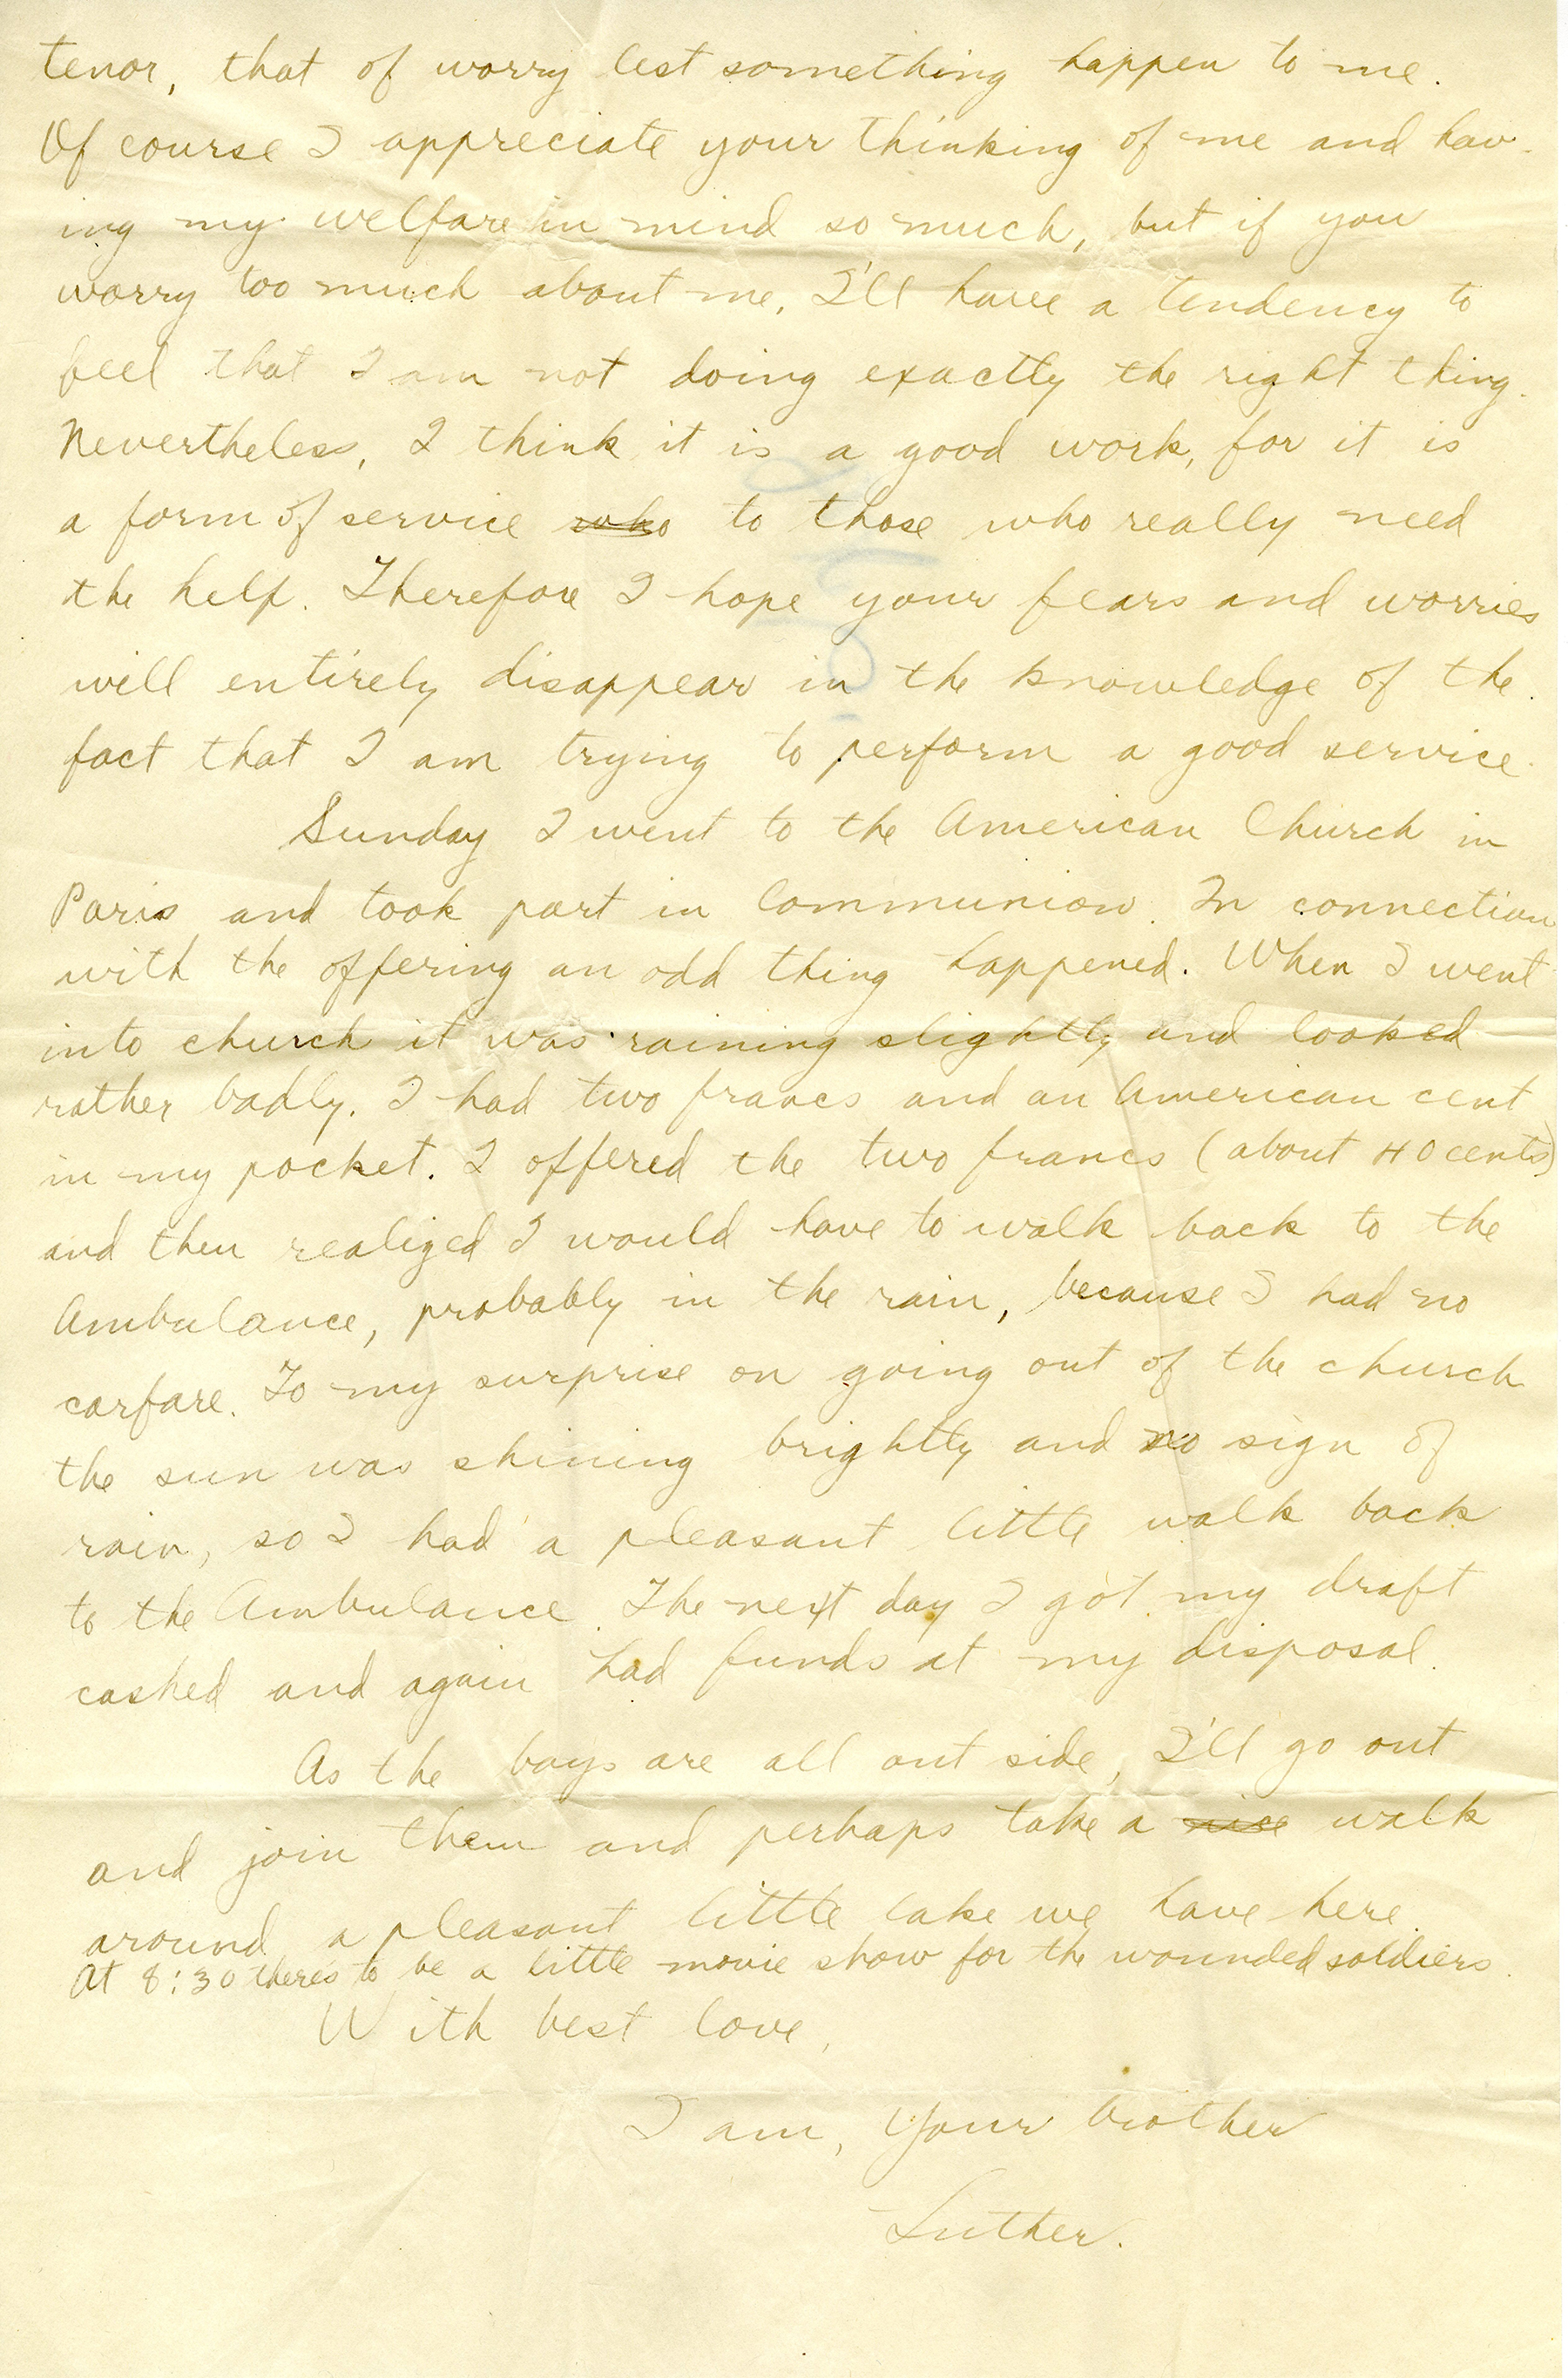 tenor, that of worry lest something happen to me.
Of course I appreciate your thinking of me and hav-
ing my welfare in mind so much, but if you
worry too much about me, I'll have a tendency to
feel that I am not doing exactly the right thing.
Nevertheless, I think it is a good work, for it is
a form of service who to those who really need
the help. Therefore I hope your fears and worries
will entirely disappear in the knowledge of the
fact that I am trying to perform a good service.
Sunday I went to the American Church in
Paris and took part in Communion. In connection
with the offering an odd thing happened. When I went
into church it was raining slightly and looked
rather badly. I had two francs and an American cent
in my pocket. I offered the two francs (about 40 cents)
and then realized I would have to walk back to the
Ambulance, probably in the rain, because I had no
carfare. To my surprise on going out of the church
the sun was shining brightly and no sign of
rain, so I had a pleasant little walk back
to the Ambulance. The next day I got my draft
cashed and again had funds at my disposal.
As the boys are all out side, I'll go out
and join them and perhaps take a nice walk
around a pleasant little lake we have here.
At 8:30 there's to be a little movie show for the wounded soldiers.
With best love,
I am, Your brother
Luther.